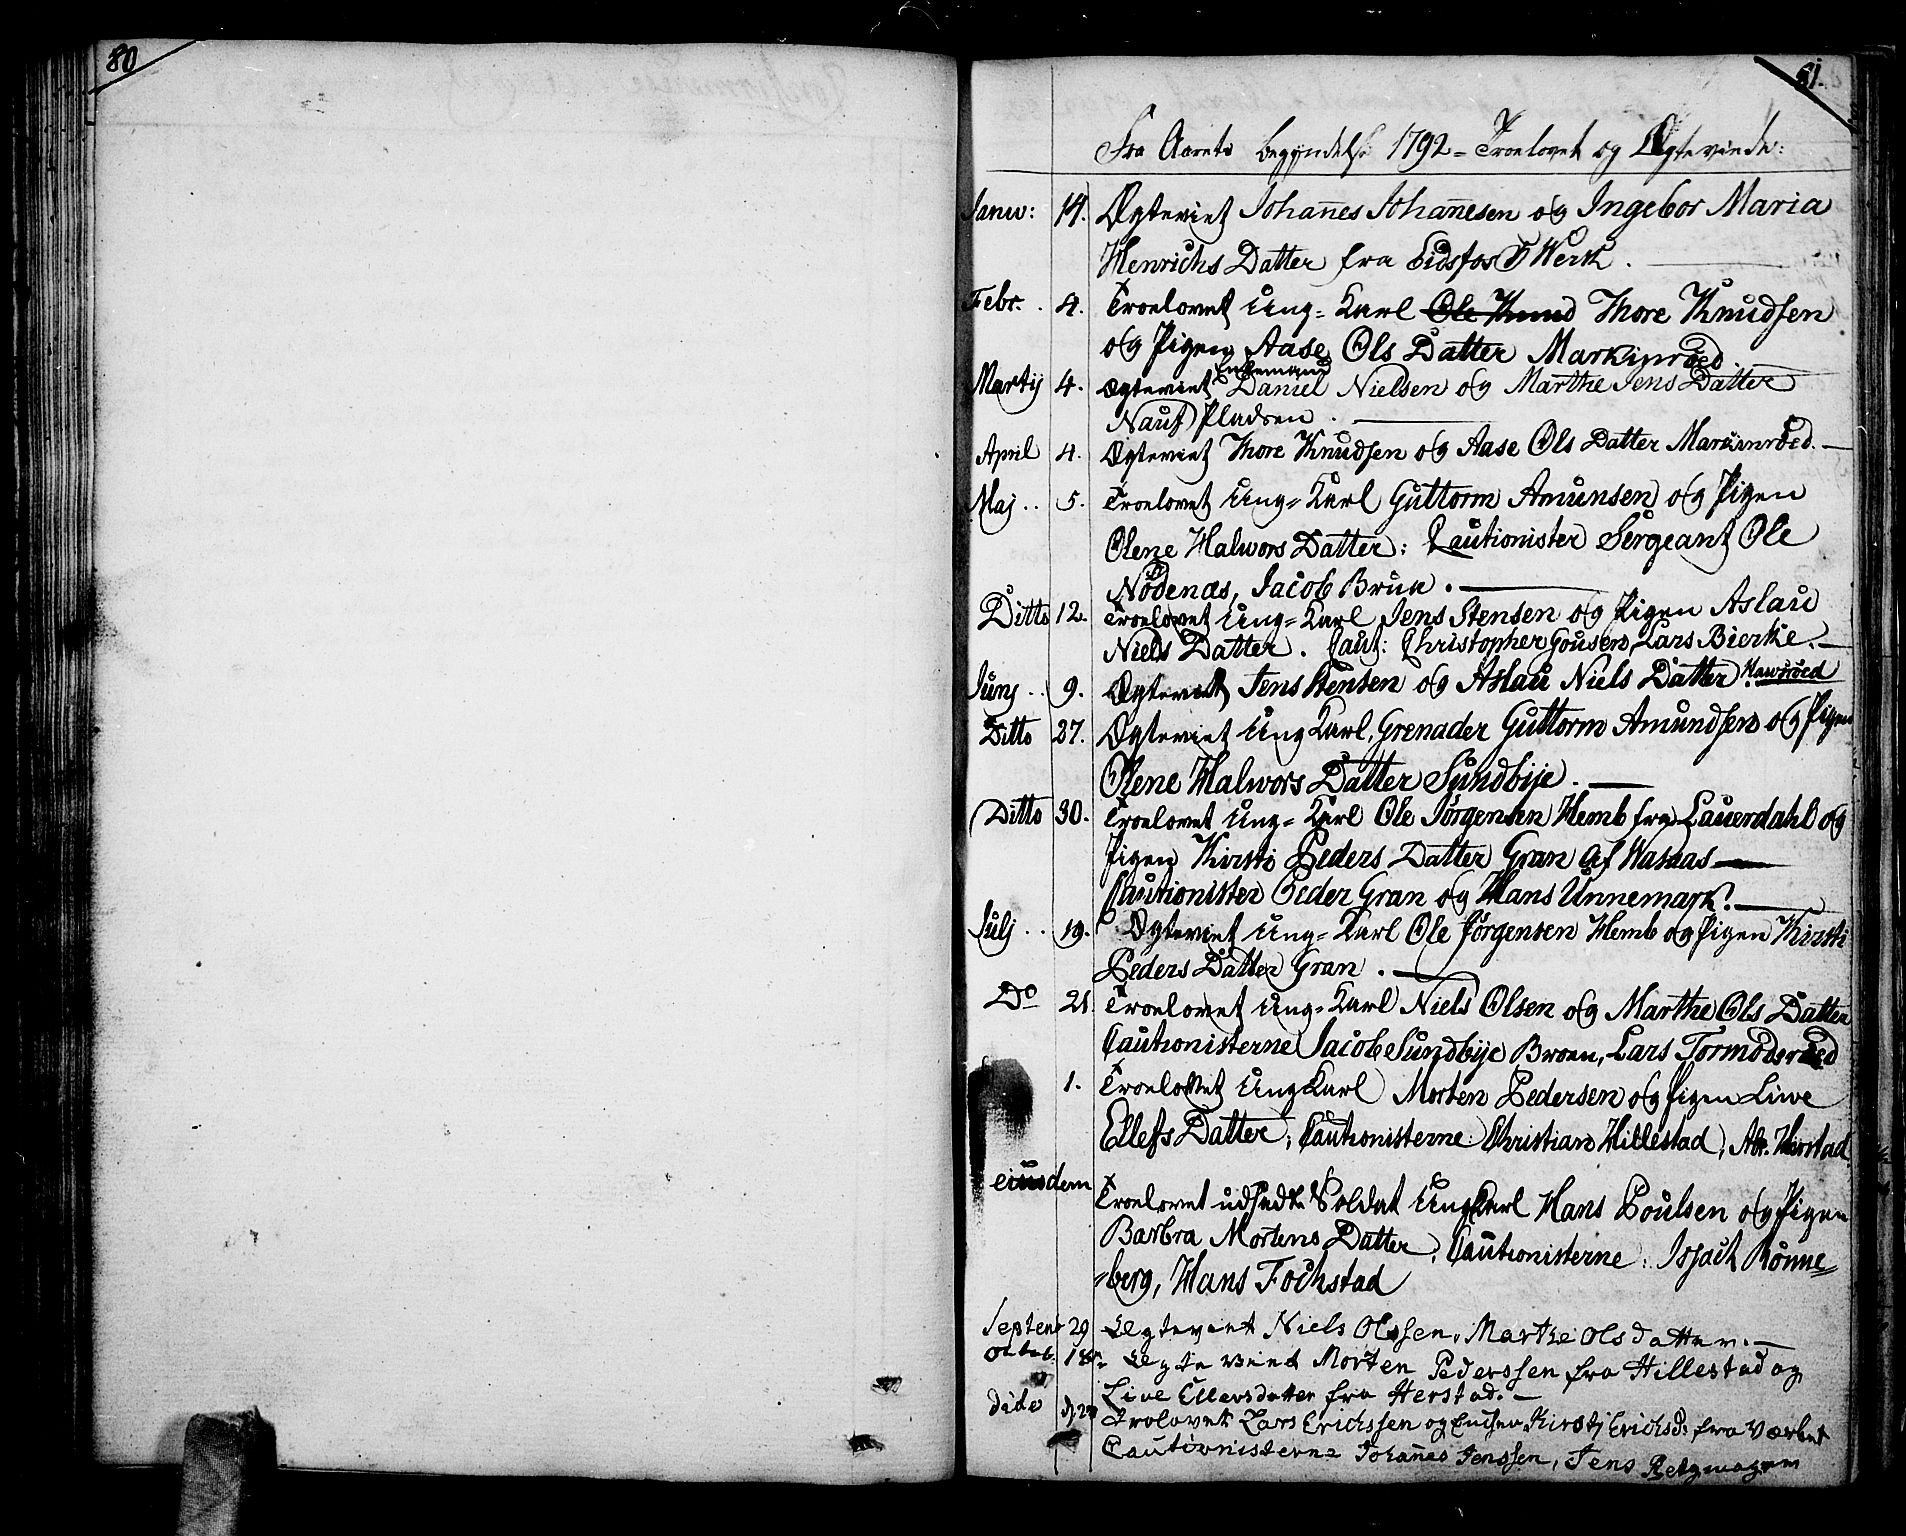 80
81.
Fra Aarets begyndelse 1792 = Troelovet og Ægteviede:
Janu: 14. Ægteviet Johan̄es Johan̄esen og Ingebor Maria
Henrichs Datter fra Eidsfos Werk.
Febr. . 4. Troelovet Ung=Karl Ole Knud Thore Knudsen
og Pigen Aase Ols Datter Markinröed
Martij 4. Ægteviet Enkemand Daniel Nielsen og Marthe Jens Datter
Nauf Pladsen.
April 4. Ægteviet Thore Knudsen og Aase Ols Datter Markinröed. —
Maj . . 5. Troelovet Ung=Karl Guttorm Amunsen og Pigen
Olene Halwors Datter: Cautionister Sergeant Ole
Nödenæs, Jacob Brun. —
Ditto 12. Troelovet Ung=Karl Jens Stensen og Pigen Aslau
Niels Datter. Caut: Christopher Gousen, Lars Bierke. —
Junj . . 9. Ægteviet Jens Stensen og Aslau Niels Datter
Ditto 27. Ægteviet Ung Karl, Grenader Guttorm Amundsen og Pigen
Olene Halwors Datter Sundbije. —
Ditto 30. Troelovet Ung=Karl Ole Jörgensen Hemb fra Lauerdahl og
Pigen Kirsti Peders Datter Gran af Wasaas —
Cautionister Peder Gran og Hans Unnemark. —
Julj . . 19. Ægteviet Ung=Karl Ole Jörgensen Hemb og Pigen Kirsti
Peders Datter Gran. —
Do 21. Troelovet Ung=Karl Niels Olsen og Marthe Ols Datter
Cautionisterne Jacob Sundbije Broen, Lars Tormodsröed
1. Troelovet Ung Karl Morten Pedersen og Pigen Liwe
Ellefs Datter; Cautionisterne: Christian Hillestad, Herstad.
eiusdem Troelovet udsedte Soldat Ung Karl Hans Poulsen og Pigen
Barbra Mortens Datter. Cautionisterne: Issach Rönne=
=berg, Hans Fochstad
Septem 29 Ægteviet Niels Olssen, Marthe Olsdatter. —
Octob. 18 Ægteviet Morten Pederssen fra Hillestad og
Live Ellevsdatter fra Herstad. —
dido d 27 Trolovet Lars Erichssen og Enchen Kirstj Erichs D: fra Værket
Cautionisterne Johan̄es Jenssen, Jens